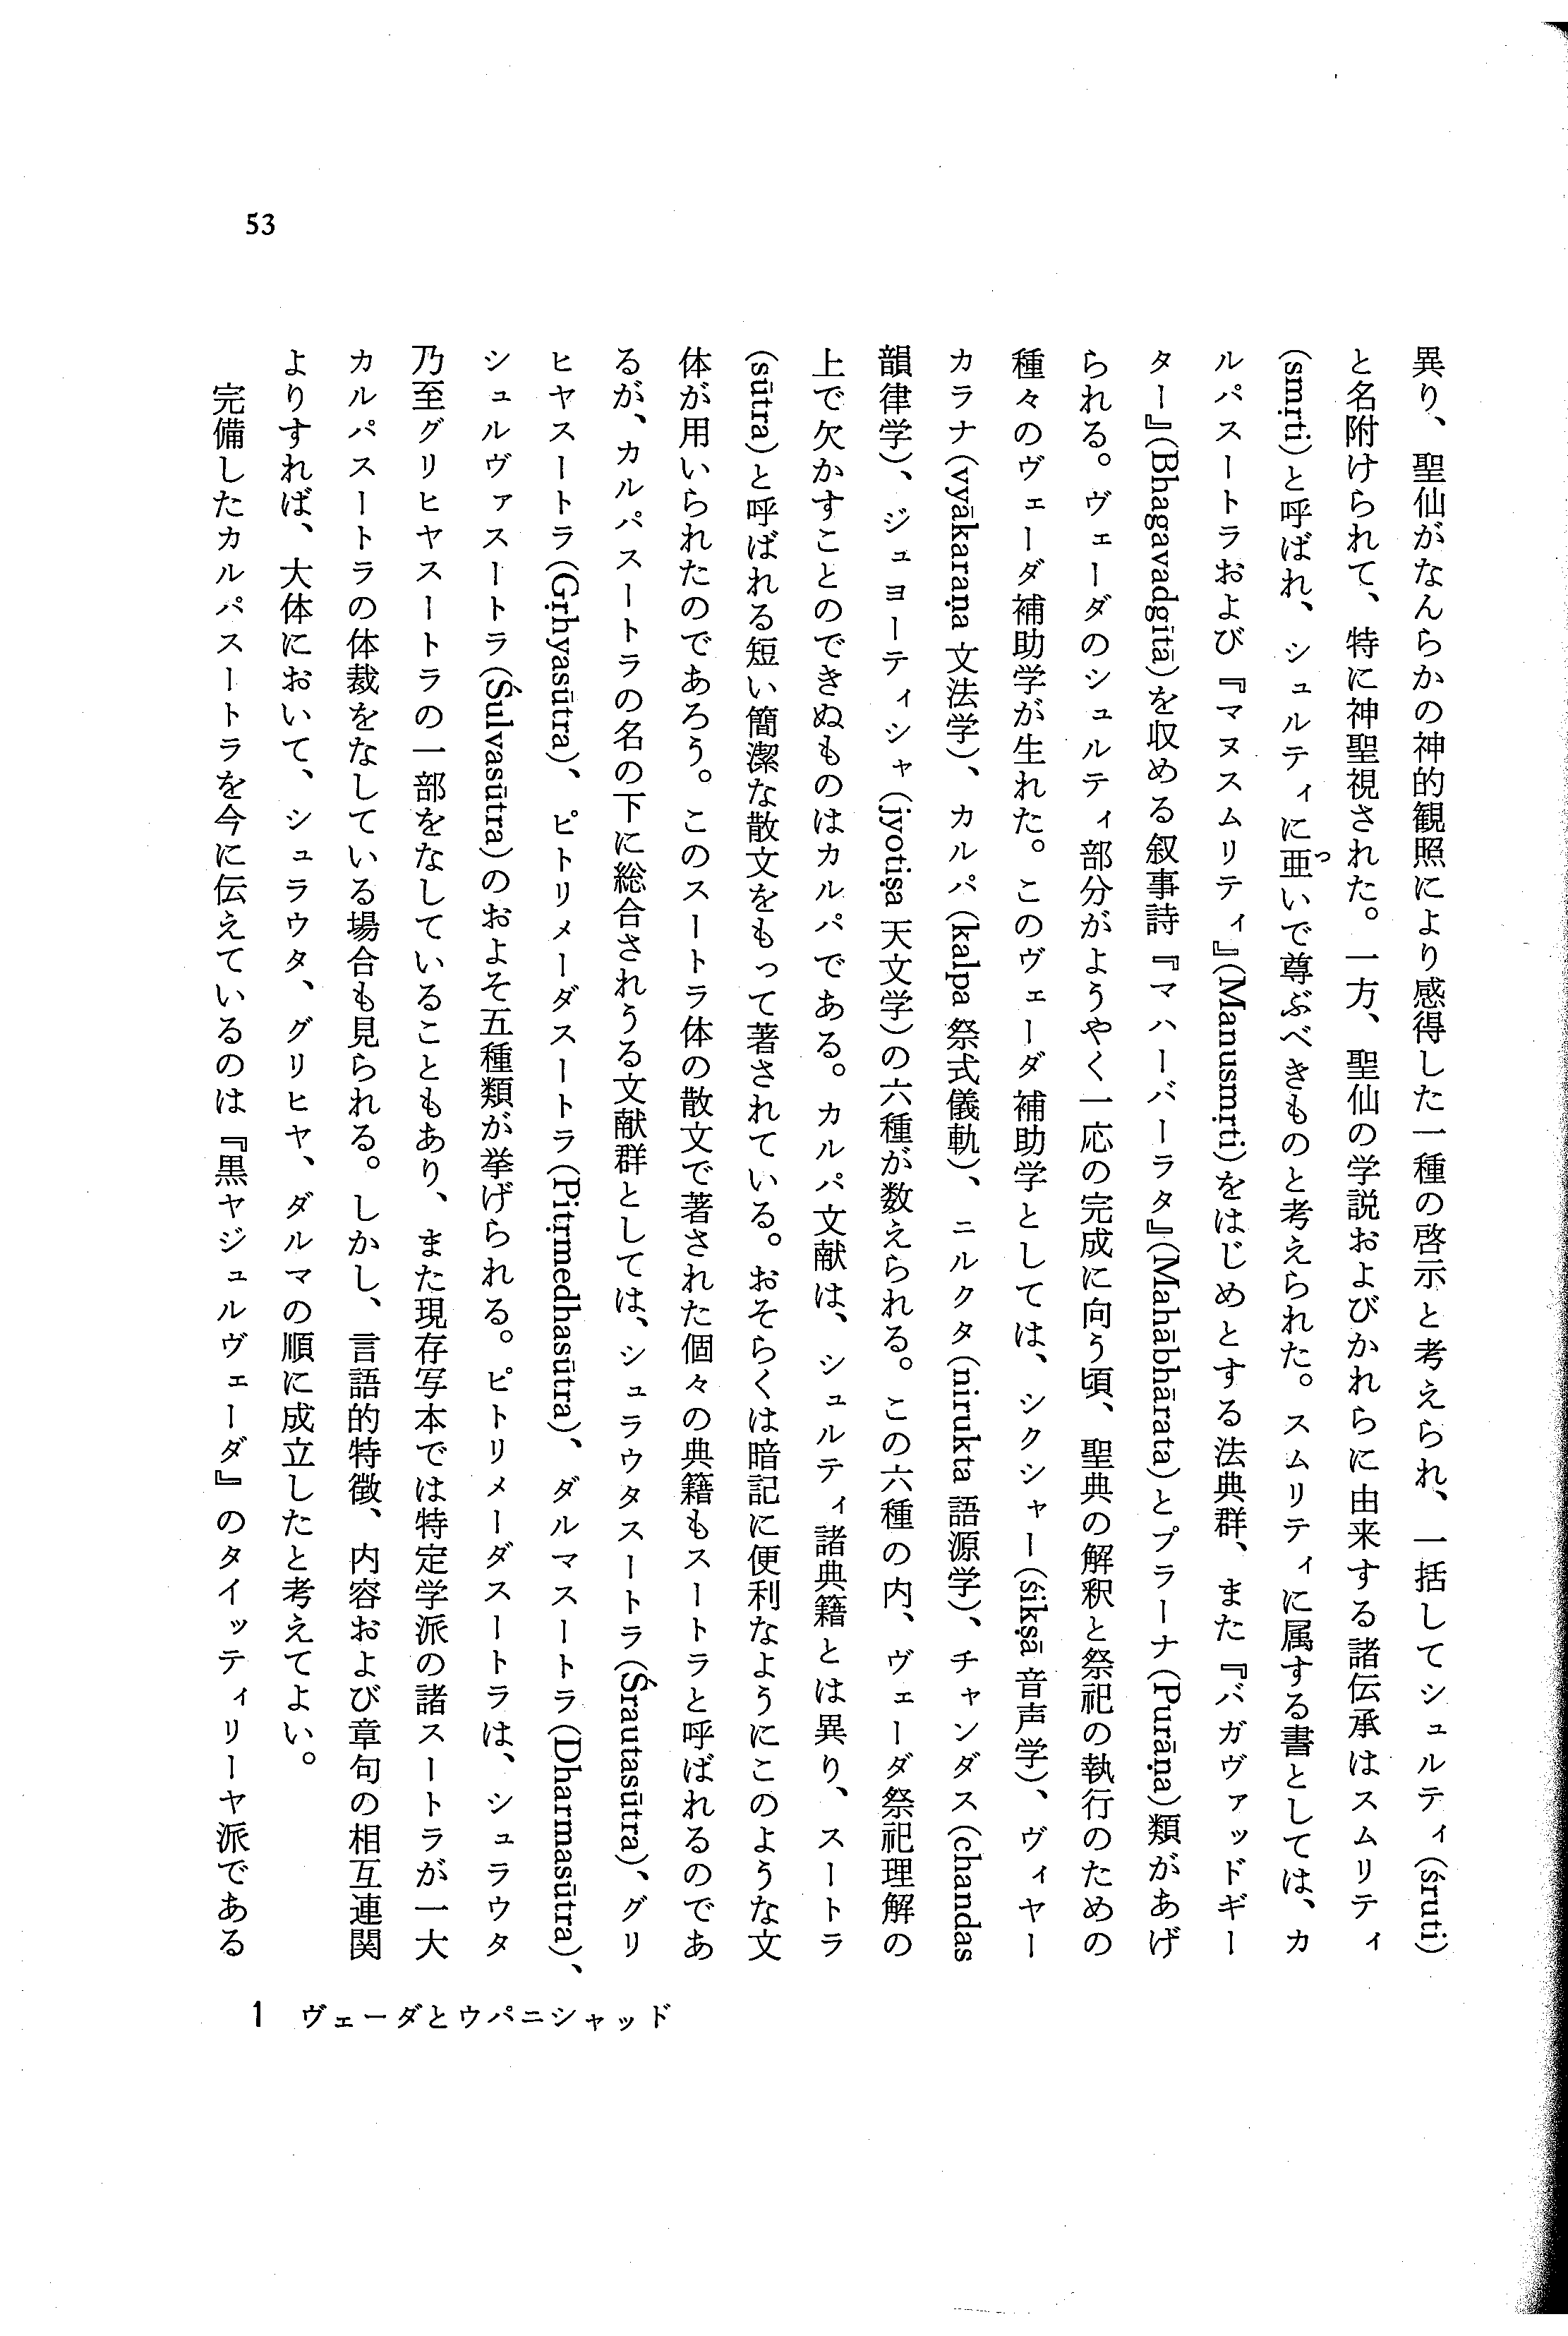 異り、聖仙がなんらかの神的観照により感得した一種の啓示と考えられ、一括してシュルティ(śruti)
と名附けられて、特に神聖視された。一方、聖仙の学説およびかれらに由来する諸伝承はスムリティ
(smṛti)と呼ばれ、シュルティに亜つついで尊ぶべきものと考えられた。スムリティに属する書としては、カ
ルパスートラおよび『マヌスムリティ』(Manusmṛti)をはじめとする法典群、また『バガヴァッドギー
ター』(Bhagavadgītā)を収める叙事詩『マハーバーラタ』(Mahābhārata)とプラーナ(Purāṇa)類があげ
られる。ヴェーダのシュルティ部分がようやく一応の完成に向う頃、聖典の解釈と祭祀の執行のための
種々のヴェーダ補助学が生れた。このヴェーダ補助学としては、シクシャー(śikṣā 音声学)、ヴィヤー
カラナ(vyākaraṇa 文法学)、カルパ(kalpa 祭式儀軌)、ニルクタ(nirukta 語源学)、チャンダス(chandas
韻律学)、ジョーティシャ(jyotiṣa 天文学)の六種が数えられる。この六種の内、ヴェーダ祭祀理解の
上で欠かすことのできぬものはカルパである。カルパ文献は、シュルティ諸典籍とは異り、スートラ
(sūtra)と呼ばれる短い簡潔な散文をもって著されている。おそらくは暗記に便利なようにこのような文
体が用いられたのであろう。このスートラ体の散文で著された個々の典籍もスートラと呼ばれるのであ
るが、カルパスートラの名の下に総合されうる文献群としては、シュラウタスートラ(Śrautasūtra)、グリ
ヒヤスートラ(Gṛhyasūtra)、ピトリメーダスートラ(Pitṛmedhasūtra)、ダルマスートラ(Dharmasūtra)、
シュルヴァスートラ(Śulvasūtra)のおよそ五種類が挙げられる。ピトリメーダスートラは、シュラウタ
乃至グリヒヤスートラの一部をなしていることもあり、また現存写本では特定学派の諸スートラが一大
カルパスートラの体裁をなしている場合も見られる。しかし、言語的特徴、内容および章句の相互連関
よりすれば、大体において、シュラウタ、グリヒヤ、ダルマの順に成立したと考えてよい。
完備したカルパスートラを今に伝えているのは『黒ヤジュルヴェーダ』のタイッティリーヤ派である
1 ヴェーダとウパニシャッド
53